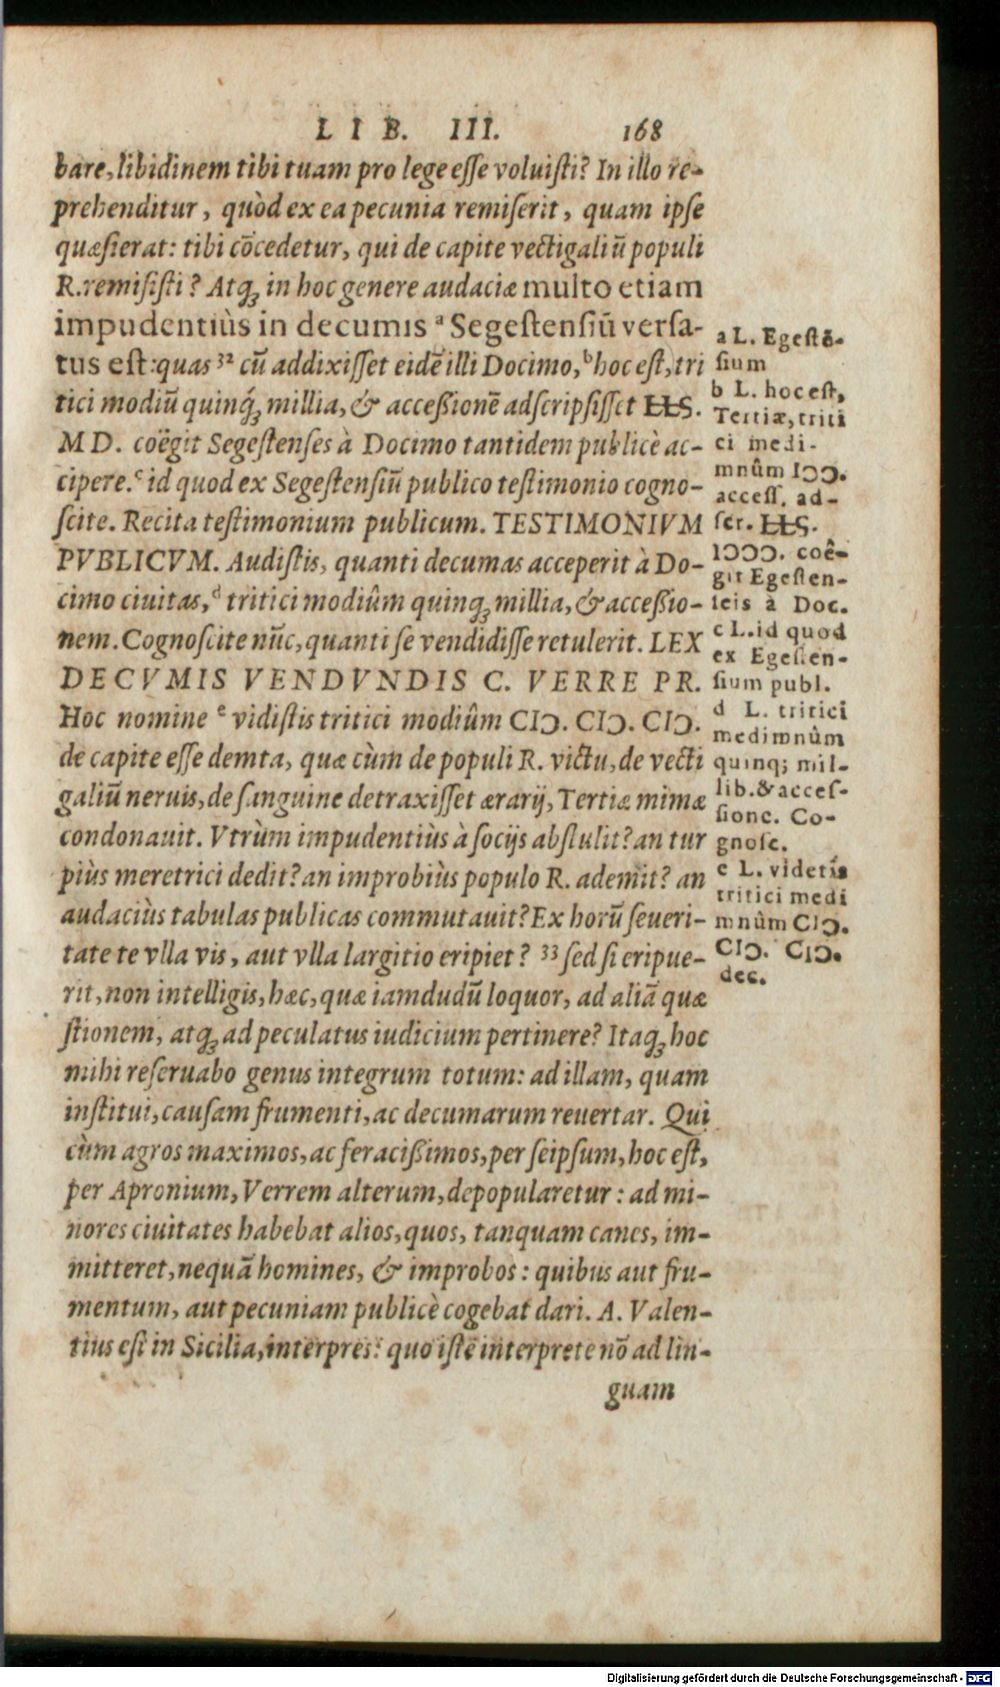 LIB. III. 168
bare, libidinem tibi tuam pro lege esse voluisti? In illo re-
prehenditur, quòd ex ea pecunia remiserit, quam ipse
quæsierat: tibi cōcedetur, qui de capite vectigaliū populi
R. remisisti? Atqꝫ in hoc genere audaciæ multo etiam
impudentiùs in decumis ᵃ Segestensiū versa-
tus est: quas ³² cū addixisset eidē illi Docimo, ᵇ hoc est, tri
tici modiū quinqꝫ millia, & accessionē adscripsisset HS.
MD. coëgit Segestenses à Docimo tantidem publicè ac-
cipere. ᶜ id quod ex Segestensiū publico testimonio cogno-
scite. Recita testimonium publicum. TESTIMONIVM
PVBLICVM. Audistis, quanti decumas acceperit à Do-
cimo ciuitas, ᵈ tritici modiûm quinqꝫ millia, & accessio-
nem. Cognoscite nūc, quanti se vendidisse retulerit. LEX
DECVMIS VENDVNDIS C. VERRE PR.
Hoc nomine ᵉ vidistis tritici modiûm CIↃ. CIↃ. CIↃ.
de capite esse demta, quæ cùm de populi R. victu, de vecti
galiū neruis, de sanguine detraxisset ærarij, Tertiæ mimæ
condonauit. Vtrùm impudentiùs à socijs abstulit? an tur
piùs meretrici dedit? an improbiùs populo R. ademit? an
audaciùs tabulas publicas commutauit? Ex horū seueri-
tate te vlla vis, aut vlla largitio eripiet? ³³ sed si eripue-
rit, non intelligis, hæc, quæ iamdudū loquor, ad aliā quæ
stionem, atqꝫ ad peculatus iudicium pertinere? Itaqꝫ hoc
mihi reseruabo genus integrum totum: ad illam, quam
institui, causam frumenti, ac decumarum reuertar. Qui
cùm agros maximos, ac feracissimos, per seipsum, hoc est,
per Apronium, Verrem alterum, depopularetur: ad mi-
nores ciuitates habebat alios, quos, tanquam canes, im-
mitteret, nequā homines, & improbos: quibus aut fru-
mentum, aut pecuniam publicè cogebat dari. A. Valen-
tius est in Sicilia, interpres: quo iste interprete nō ad lin-
guam
a L. Egestē-
sium
b L. hoc est,
Tertiæ, triti
ci medi-
mnûm IↃↃ.
access. ad-
scr. HS.
IↃↃↃ. coê-
git Egesten-
teis à Doc.
c L. id quod
ex Egesten-
sium publ.
d L. tritici
medimnûm
quinqꝫ mil-
lib. & acces-
sione. Co-
gnosc.
e L. videtis
tritici medi
mnûm CIↃ.
CIↃ. CIↃ.
dec.
Digitalisierung gefördert durch die Deutsche Forschungsgemeinschaft - DFG